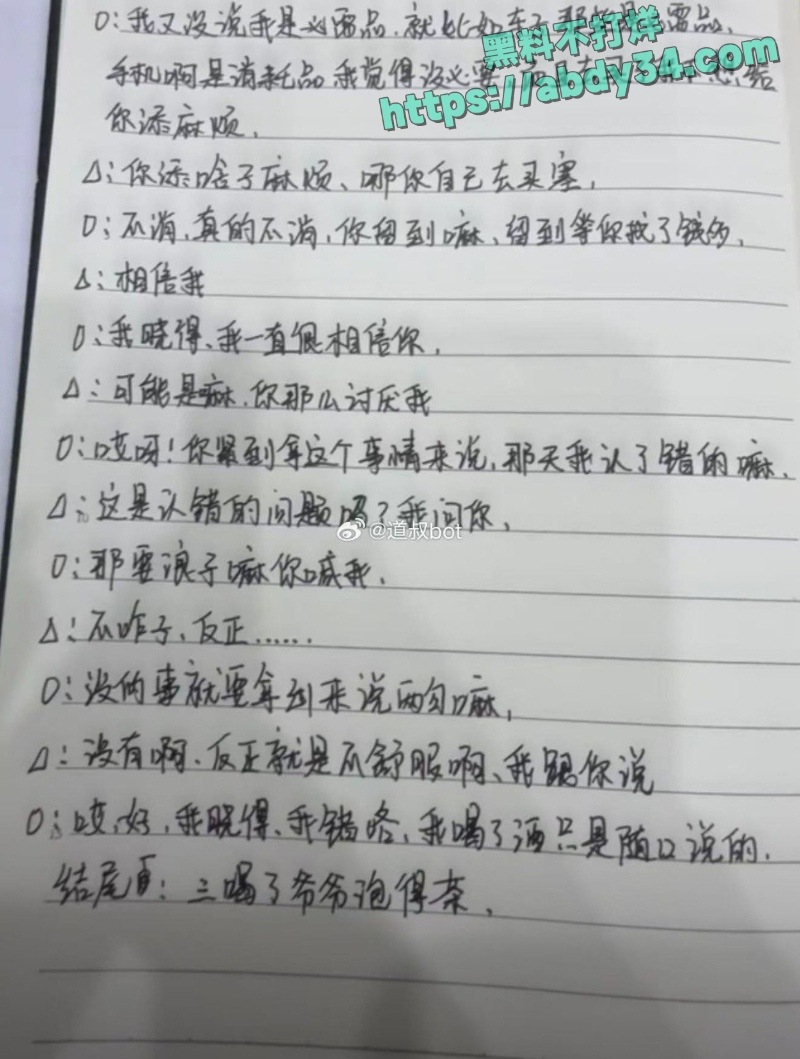 O:我又没说我是必需品,就比如车子那些是必需品,
黑料不打烊
https://abdy34.com
手机啊是消耗品,我觉得没必要,结
你添麻烦,
Δ:你添啥子麻烦、哪你自己去买塞,
O:不消,真的不消,你留到嘛、留到等你找了钱多,
Δ:相信我
O:我晓得、我一直很相信你,
Δ:可能是嘛,你那么讨厌我
O:哎呀!你紧到拿这个事情来说,那天我认了错的嘛,
Δ:这是认错的问题吗?我问你,
@道叔bot
O:那要浪子嘛你喊我,
Δ:不咋子、反正......
O:没的事就要拿到来说两句嘛,
Δ:没有啊、反正就是不舒服啊、我跟你说
O:哎,好,我晓得、我错咯,我喝了酒只是随口说的,
结尾自:三喝了爷爷泡得茶,